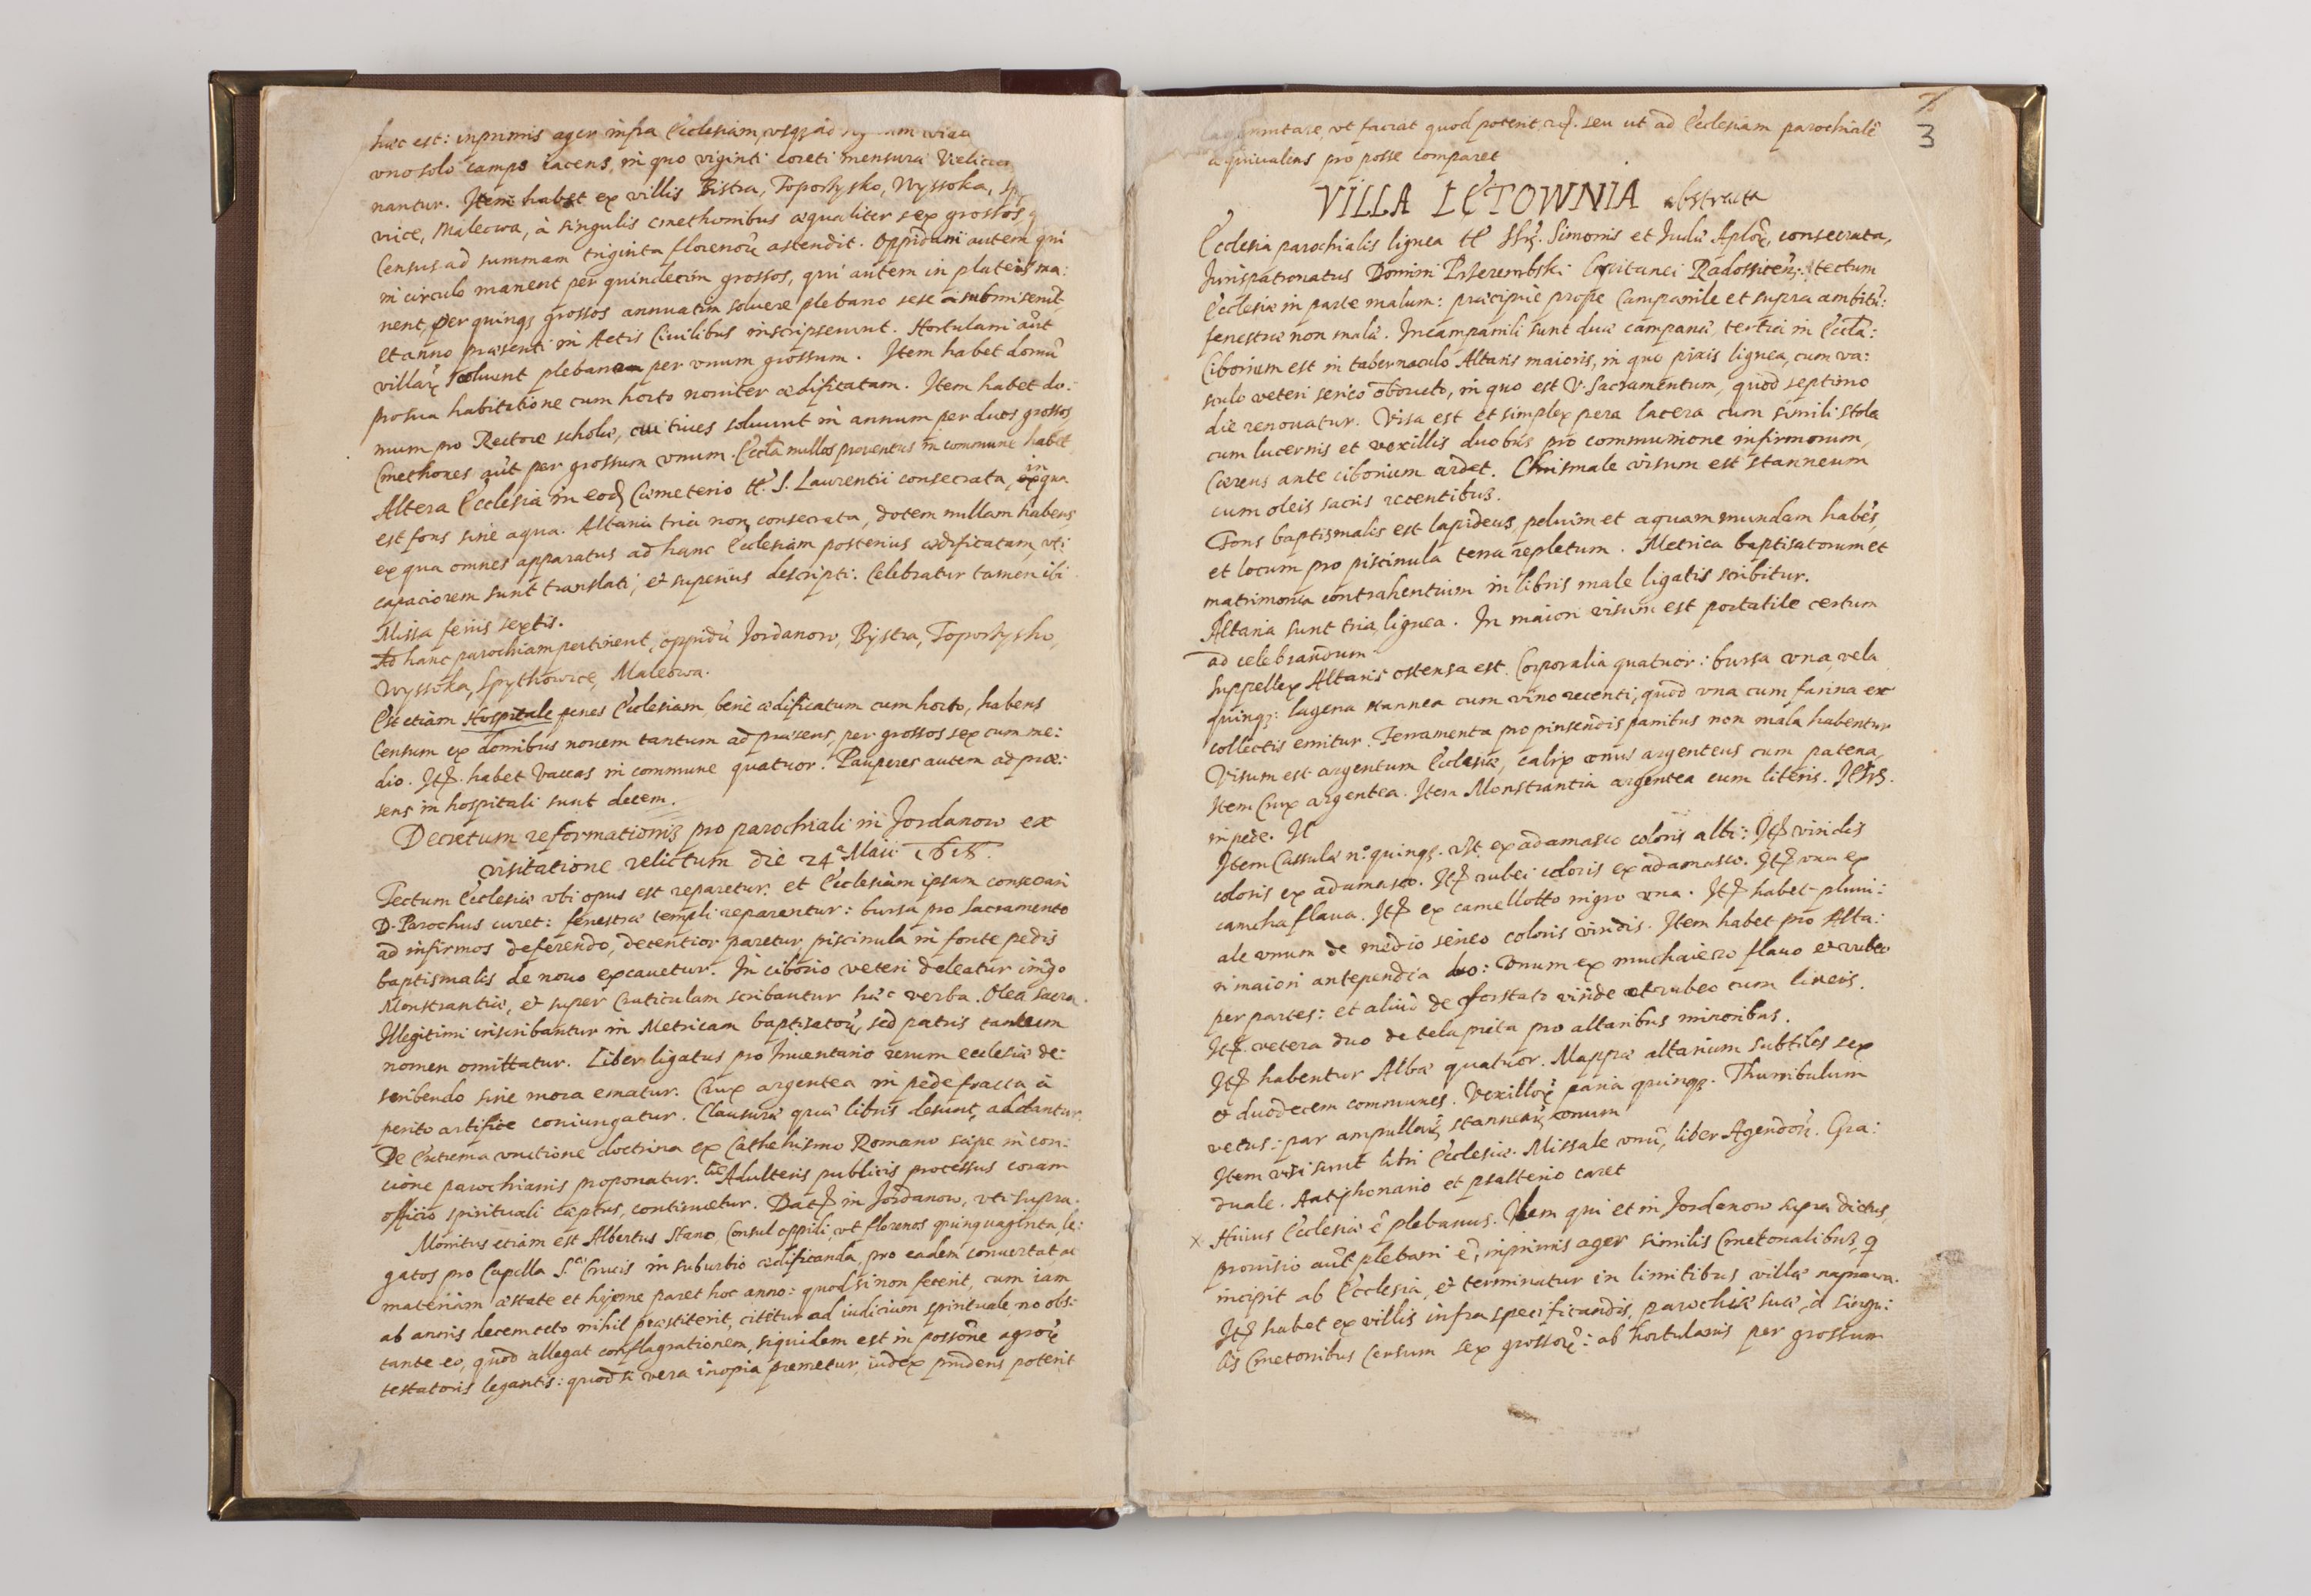 hæc est: inprimis ager infra Ecclesiam, vsq; ad
vno solo campo iacens, in quo viginti coreti mensuræ
nantur. Item habet ex villis Bistra, Toporzysko, Wyssoka,
vice, Maleowa, à singulis cmethonibus æqualiter sex grossos
Census ad summam triginta florenorũ ascendit. Oppidani autem qui
in circulo manent per quindecim grossos, qui autem in plateis ma:
nent, per quinq; grossos annuatim soluere plebano sese submiserũt,
et anno præsenti in Actis Ciuilibus inscripserunt. Hortulani aũt
villarũ soluunt plebano per vnum grossum. Item habet domũ
pro sua habitatione cum horto nouiter ædificatam. Item habet do:
mum pro Rectore scholæ, cui ciues soluunt in annum per duos grossos
Cmethones aũt per grossum vnum. Eccla nullos prouentus in commune habet
Altera Ecclesia in eod Cæmeterio tt. S. Laurentii consecrata, in qua
est fons sine aqua. Altaria tria non consecrata, dotem nullam habens
ex qua omnes apparatus ad hanc Ecclesiam posterius ædificatam, vti
capaciorem sunt translati, et superius descripti. Celebratur tamen ibi
Missa feriis sextis.
Ad hanc parochiam pertinent, oppidũ Jordanow, Bystra, Toporzysko,
Wyssoka, Spythowice, Maleowa.
Est etiam Hospitale penes Ecclesiam, bene ædificatum cum horto, habens
Censum ex domibus nouem tantum ad præsens, per grossos sex cum me:
dio. Itẽ habet Vaccas in commune quatuor. Pauperes autem ad præ:
sens in hospitali sunt decem.
Decretum reformationis pro parochiali in Jordanow ex
visitatione relictum die 24 Maii
Tectum Ecclesiæ vbi opus est reparetur: et Ecclesiam ipsam consecrari
D. Parochus curet: fenestræ templi reparentur: bursa pro Sacramento
ad infirmos deferendo, decentior paretur, piscinula in fonte pedis
baptismalis de nouo excauetur. In ciborio veteri deleatur imãgo
Monstrantiæ, et super Craticulam scribantur hæc verba. Olea Sacra.
Illegitimi inscribantur in Metricam baptisatorũ, sed patris tantum
nomen omittatur. Liber ligatus pro Inuentario rerum ecclesiæ de:
scribendo sine mora ematur. Crux argentea in pede fracta à
perito artifice coniungatur. Clausuræ quæ libris desunt, addantur.
De Extrema vnctione doctrina ex Cathehismo Romano sæpe in con:
cione parochianis proponatur. Adulteris publicis processus coram
officio spirituali cæptus, continuetur. Datũ in Jordanow, vti supra.
Monitus etiam est Albertus Stano, Consul oppidi, vt florenos quinquaginta, le:
gatos pro Capella S. Crucis in suburbio ædificanda, pro eadem conuertat, ac
materiam æstate et hyeme paret hoc anno: quod si non fecerit, cum iam
ab annis decemocto nihil præstiterit, citetur ad iudicium spirituale, no obs:
tante eo, quod allegat conflagrationem, siquidem est in possõne agrorũ
testatoris legantis: quod si vera inopia premetur, iudex prudens poterit
3
vt faciat quod poterit, seu ut ad Ecclesiam parochialẽ
æquiualens pro posse comparet
VILLA LĘTOWNIA abstracta
Ecclesia parochialis lignea tt SS. Simonis et Judæ Aplorũ, consecrata,
Jurispatronatus Domini Przerembski Capitanei Radossicen: tectum
Ecclesiæ in parte malum: præcipuè prope Campanile et supra ambitũ:
fenestræ non malæ. In campanili sunt duæ campanæ, tertia in Eccla:
Ciborium est in tabernaculo Altaris maioris, in quo pixis lignea, cum va:
sculo veteri serico obducto, in quo est V. Sacramentum, quod septimo
die renouatur. Visa est et simplex pera lacera cum simili stola
cum lucernis et vexillis duobus pro communione infirmorum,
Cæreus ante ciborium ardet. Chrismale visum est stanneum
cum oleis sacris recentibus.
Fons baptismalis est lapideus, peluim et aquam mundam habẽs,
et locum pro piscinula terra repletum. Metrica baptisatorum et
matrimonia contrahentium in libris male ligatis scribitur.
Altaria sunt tria, lignea. In maiori visum est portatile certum
ad celebrandum.
Suppellex Altaris ostensa est. Corporalia quatuor: bursa vna, vela
quinq;: lagena stannea cum vino recenti, quod vna cum farina ex
collectis emitur. Ferramenta pro pinsendis panibus non mala habentur
Visum est argentum Ecclesiæ, calix vnus argenteus cum patena,
Item Crux argentea. Item Monstrantia argentea cum literis. IHS.
in pede. It
Item Casulæ nº quinq;. vĩt. ex adamasco coloris albi: Itẽ viridis
coloris ex adamasco. Itẽ rubei coloris ex adamasco. Itẽ vna ex
camcha flaua. Itẽ ex camellotto nigro vna. Itẽ habet pluui:
ale vnum de medio serico coloris viridis. Item habet pro Alta:
ri maiori antependia duo: vnum ex muchaiero flauo et rubeo
per partes: et aliud de forstato viride et rubeo cum lineis.
Itẽ vetera duo de tela picta pro altaribus minoribus.
Itẽ habentur Albæ quatuor. Mappæ altarium subtiles sex
et duodecem communes. Vexillorũ paria quinq;. Thuribulum
vetus: par ampullarũ stannearũ vnum
Item visi sunt libri Ecclesiæ. Missale vnũ, liber Agendorũ. Gra:
duale. Antiphonario et psalterio caret
x Huius Ecclesiæ ẽ plebanus. Idem qui et in Jordanow supra dictus,
prouisio aũt plebani ẽ, inprimis ager similis Cmetonalibus, q
incipit ab Ecclesia, et terminatur in limitibus villæ naprawa.
Itẽ habet ex villis infra specificandis, parochiæ suæ, à singu:
lis Cmetonibus Censum sex grossorũ: ab hortulanis per grossum